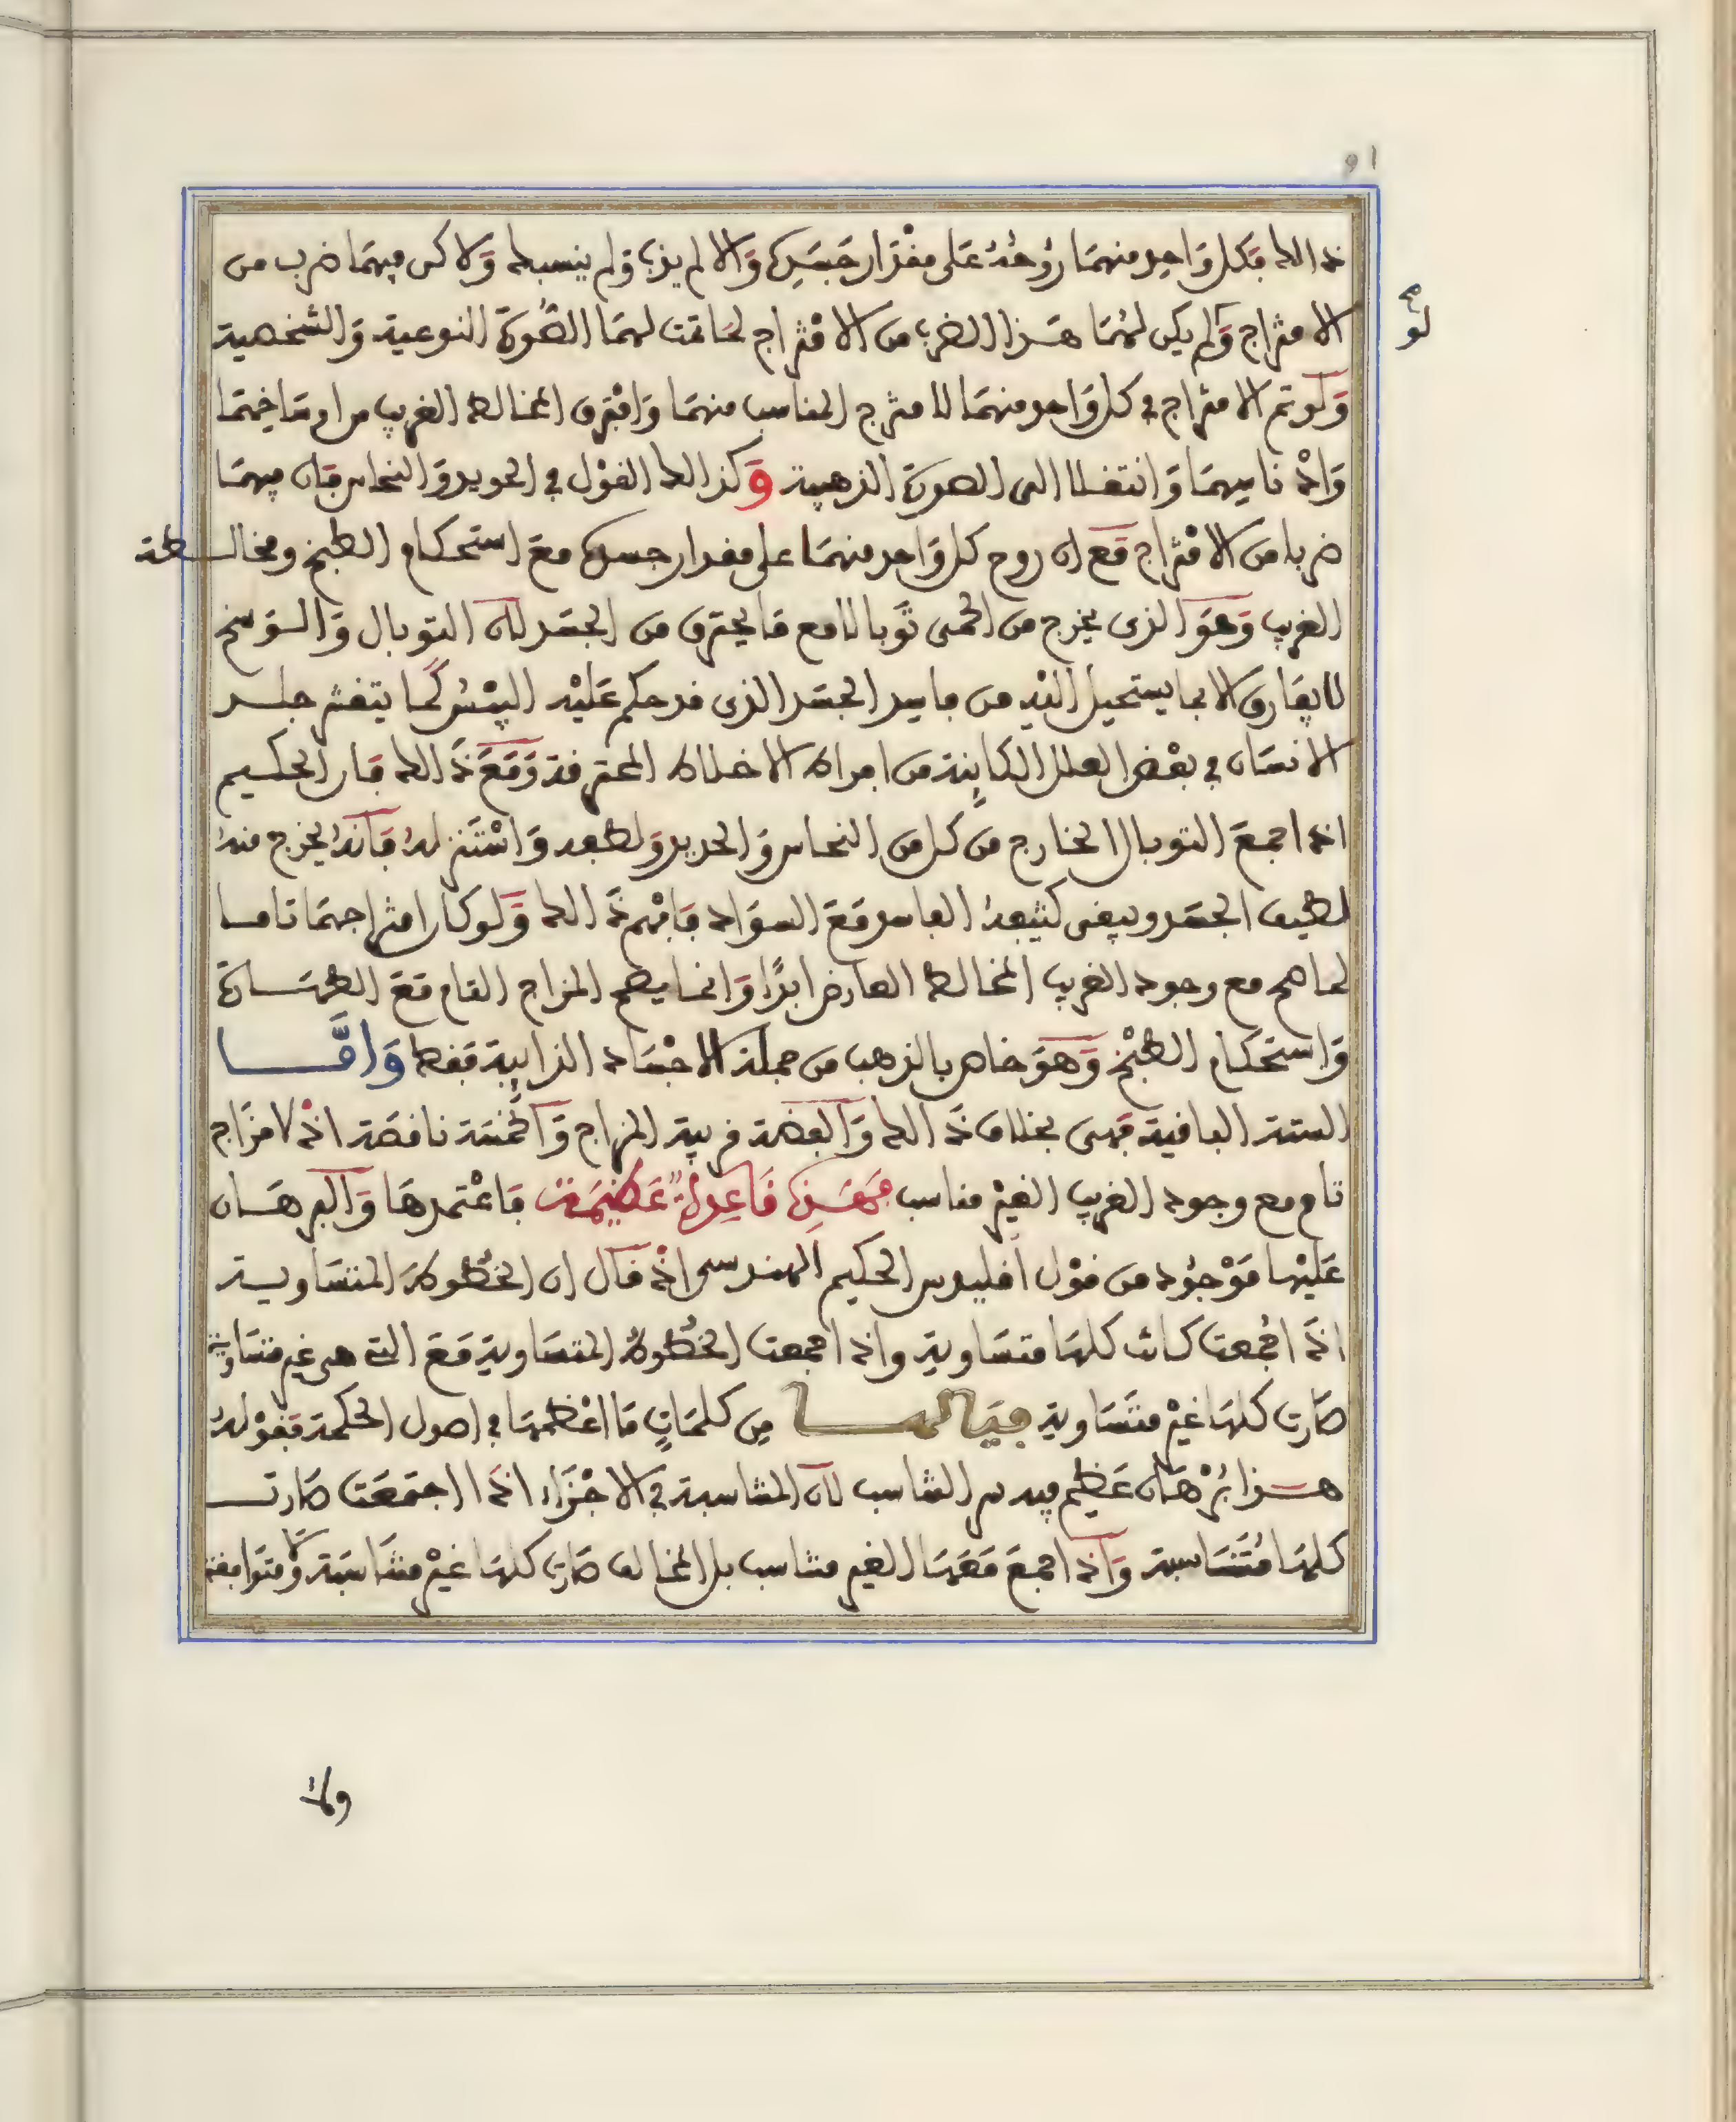 91
ذالك فكل واحد منهما روحه على مقدار جسده والا لم يذب ولم ينسبك ولاكن فيهما ضرب من
الامتزاج ولم يكن لهما هذا الضرب من الامتزاج لما تمت لهما الصورة النوعية والشخصية
لو لم
ولو تم الامتزاج في كل واحد منهما لامتزج المناسب منهما وافترق المخالط الغريب من
وانتقلا الى الصورة الذهبية وكذالك القول في الحديد والنحاس فان فيهما
ضربا من الامتزاج مع ان روح كل واحد منهما على مقدار جسده مع استحكام الطبخ ومخالطة
الغريب وهو الذى يخرج من الحمى توبالا مع ما يحترق من الجسد لان التوبال والوسخ
لا يفارق الا بما يستحيل اليه من فاسد الجسد الذى قد حكم عليه اليبس كما يتقشر جلد
الانسان في بعض العلل الكاينة من افراط الاخلاط المحترقة ومع ذالك قال الحكيم
اذا اجمع التوبال الخارج من كل من النحاس والحديد ولطفه واستنزله فانه يخرج منه
لطيف الجسد ويبقى كثيفه الفاسد مع السواد فافهم ذالك ولو كان امتزاجهما تاما
لما مع وجود الغريب المخالط العارض ابدا وانما المزاج التام مع الطهارة
واستحكام الطبخ وهو خاص بالذهب من جملة الاجساد الذايبة فقط وامّا
الستة الباقية فهى بخلاف ذالك والفضة قريبة المزاج والخمسة ناقصة اذ لا مزاج
تام مع وجود الغريب الغير مناسب فهذه قاعدة عظيمة فاعتمدها والبرهان
عليها موجود من قول اقليدس الحكيم المهندسى اذ قال ان الخطوط المتساوية
اذا اجمعت كانت كلها متساوية واذا اجمعت الخطوط المتساوية مع التى هى غير متساوية
صارت كلها غير متساوية فيالها من كلمات ما اعظمها في اصول الحكمة فقوله
هذا برهان عظيم فيه سر التناسب لان المتناسبة في الاجزاء اذا اجتمعت صارت
كلها متناسبة واذا اجمع معها الغير متناسب بل المخالف صارت كلها غير متناسبة ولا متوافقة
ولا